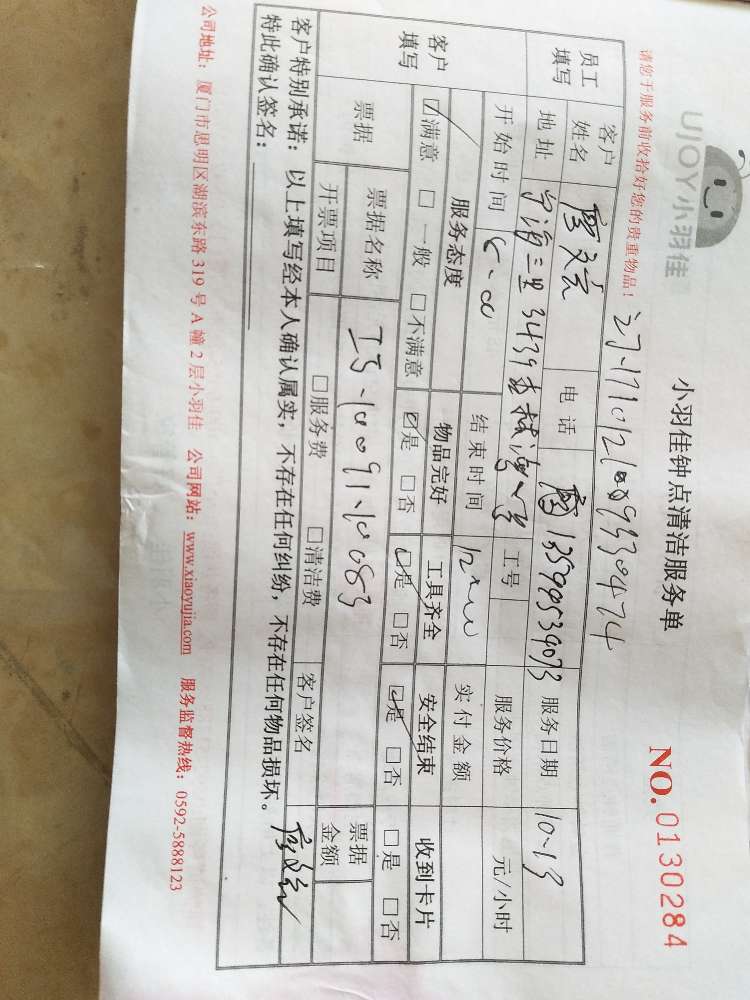 UJOY小羽佳
小羽佳钟点清洁服务单
NO.0130284
请您于服务前收拾好您的贵重物品！
员工填写 客户姓名 电话 13599539073 服务日期 10-13
地址 工号 服务价格 元/小时
开始时间 结束时间 实付金额
客户填写 服务态度 物品完好 工具齐全 安全结束 收到卡片
☑满意 □一般 □不满意 ☑是 □否 ☑是 □否 ☑是 □否 □是 □否
票据 票据名称 票据金额
开票项目 □服务费 □清洁费 客户签名
客户特别承诺：以上填写经本人确认属实，不存在任何纠纷，不存在任何物品损坏。
特此确认签名：
公司地址：厦门市思明区湖滨东路319号A幢2层小羽佳 公司网站：www.xiaoyujia.com 服务监督热线：0592-5888123